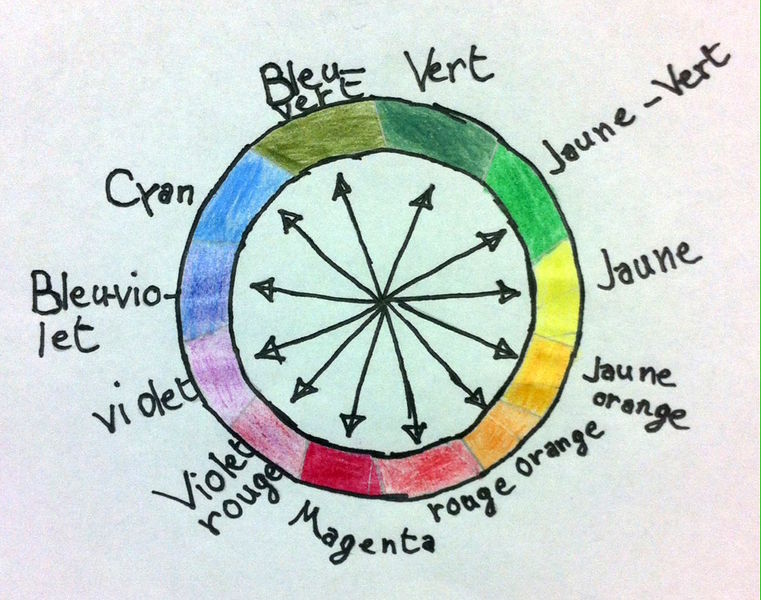 Bleu-
vert
Vert
Jaune-Vert
Jaune
Jaune
orange
orange
rouge
Magenta
Violet
rouge
violet
Bleu-vio-
let
Cyan